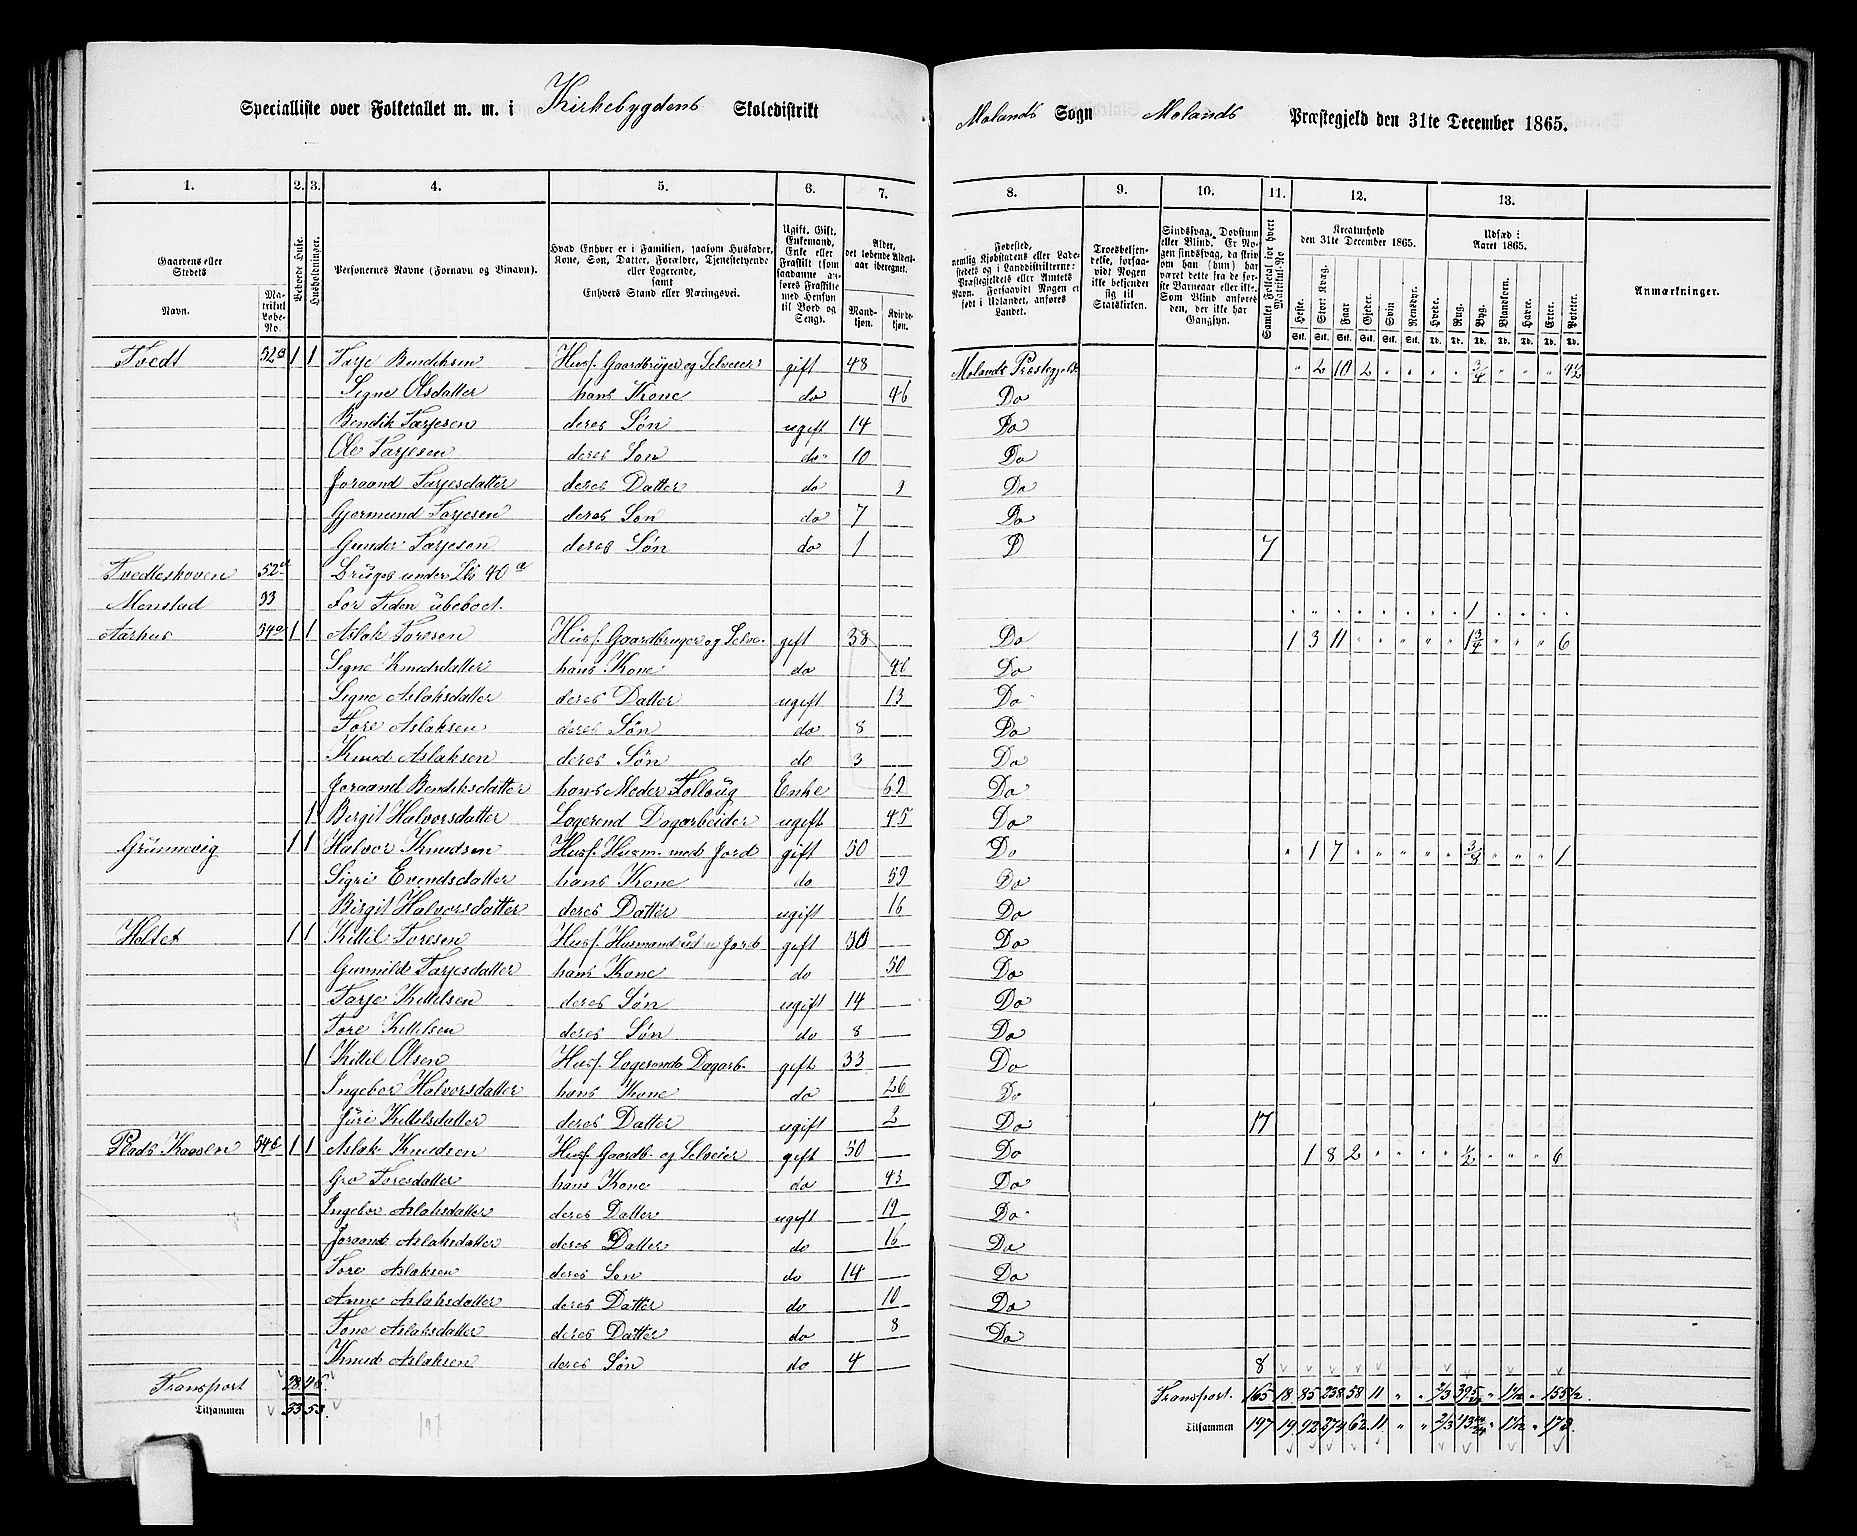 Specialliste over Folketallet m. m. i Kirkebygdens Skoledistrikt
Molands Sogn Molands Præstegjeld den 31te December 1865.
1. 2. 3. 4. 5. 6. 7. 8. 9. 10. 11. 12. 13.
Gaardens eller Stedets
Navn.
Matrikul Løbe-No.
Beboede Huse.
Husholdninger.
Personernes Navne (Fornavn og Tilnavn).
Hvad Enhver er i Familien, saasom Husfader, Kone, Søn, Datter, Forældre, Tjenestetyende eller Logerende, samt Enhvers Stand eller Næringsvei.
Ugift, Gift, Enkemand, Enke eller Fraskilt (som saadanne anføres Fraskilte med Hensyn til Bord og Seng).
Alder, det løbende Aldersaar iberegnet.
Mandkjøn.
Kvindekjøn.
Fødested, nemlig Kjøbstadens eller Ladestedets og i Landdistrikterne: Præstegjeldets eller Amtets Navn. Forsaavidt Nogen er født i Udlandet, anføres Landet.
Troesbekjendelse, forsaavidt Nogen ikke bekjender sig til Statskirken.
Sindssvag, Døvstum eller Blind. Er Nogen sindssvag, da skriv om han (hun) har været dette fra de første Barneaar eller ikke. Som Blind anføres den, der ikke har Gangsyn.
Samlet Folketal for hvert Matrikul-No
Kreaturhold den 31te December 1865.
Heste. Stort Kvæg. Faar Gjeder. Svin Rensdyr.
Stk. Stk. Stk. Stk. Stk. Stk.
Udsæd i Aaret 1865.
Hvede. Rug. Byg. Blandkorn. Havre. Erter. Poteter.
Td. Td. Td. Td. Td. Td. Td.
Anmærkninger.
Tvedt 52a 1 1 Tarje Bendiksen Husf. Gaardbruger og Selveier gift 48 Molands Præstegjeld " 2 10 2 " " " " 3/4 " " " 4½
Signe Olsdatter hans Kone do 46 Do
Bendik Tarjesen deres Søn ugift 14 Do
Ole Tarjesen deres Søn do 10 Do
Joraand Tarjesdatter deres Datter do 9 Do
Gjermund Tarjesen deres Søn do 7 Do
Gunder Tarjesen deres Søn do 1 D 7
Tvedteshoven 52 Bruges under Lb 40a
Monstad 33 For Tiden ubeboet. " " " " " " " " 1 " " " "
Aarhus 54a 1 1 Aslak Toresen Husf. Gaardbruger og Selve. gift 38 Do 1 3 11 " " " " " 1 3/4 " " " 6
Signe Knudsdatter hans Kone do 46 Do
Signe Aslaksdatter deres Datter ugift 13 Do
Tore Aslaksen deres Søn do 8 Do
Knud Aslaksen deres Søn do 3 Do
Joraand Bendiksdatter hans Moder Følloug Enke 69 Do
1 Birgit Halvorsdatter Logerend Dagarbeider ugift 45 Do
Grünnevig 1 1 Halvor Knudsen Husf. Husm. med Jord gift 50 Do " 1 7 " " " " " 3/4 " " " 1
Sigri Evendsdatter hans Kone do 59 Do
Birgit Halvorsdatter deres Datter ugift 16 Do
Holtet 1 1 Kittil Toresen Husf. Husmand ut n Jord gift 50 Do
Gunnild Tarjesdatter hans Kone do 50 Do
Tarje Kittelsen deres Søn ugift 14 Do
Tore Kittelsen deres Søn do 8 Do
1 Kittil Olsen Husf. Logerende Dagarb. gift 33 Do
Ingebor Halvorsdatter hans Kone do 26 Do
Jüri Kittelsdatter deres Datter ugift 2 Do 17
Plads Kaasen 54b 1 1 Aslak Knudsen Husf. Gaardb. og Selveier gift 50 Do 1 8 2 " " " " ½ " " " 6
Gro Toresdatter hans Kone do 43 Do
Ingebor Aslaksdatter deres Datter ugift 19 Do
Joraand Aslaksdatter deres Datter do 16 Do
Tore Aslaksen deres Søn do 14 Do
Anne Aslaksdatter deres Datter do 10 Do
Tone Aslaksdatter deres Datter do 8 Do
Knud Aslaksen deres Søn do 4 8
Transport 28 46. Transport. 165 18 85 238 58 11 " " 2/3 " 1½ " 155½
Tilsammen 33 53. Tilsammen 197 19 92 274 62 11 " " 2/3 " 1½ " 173
197